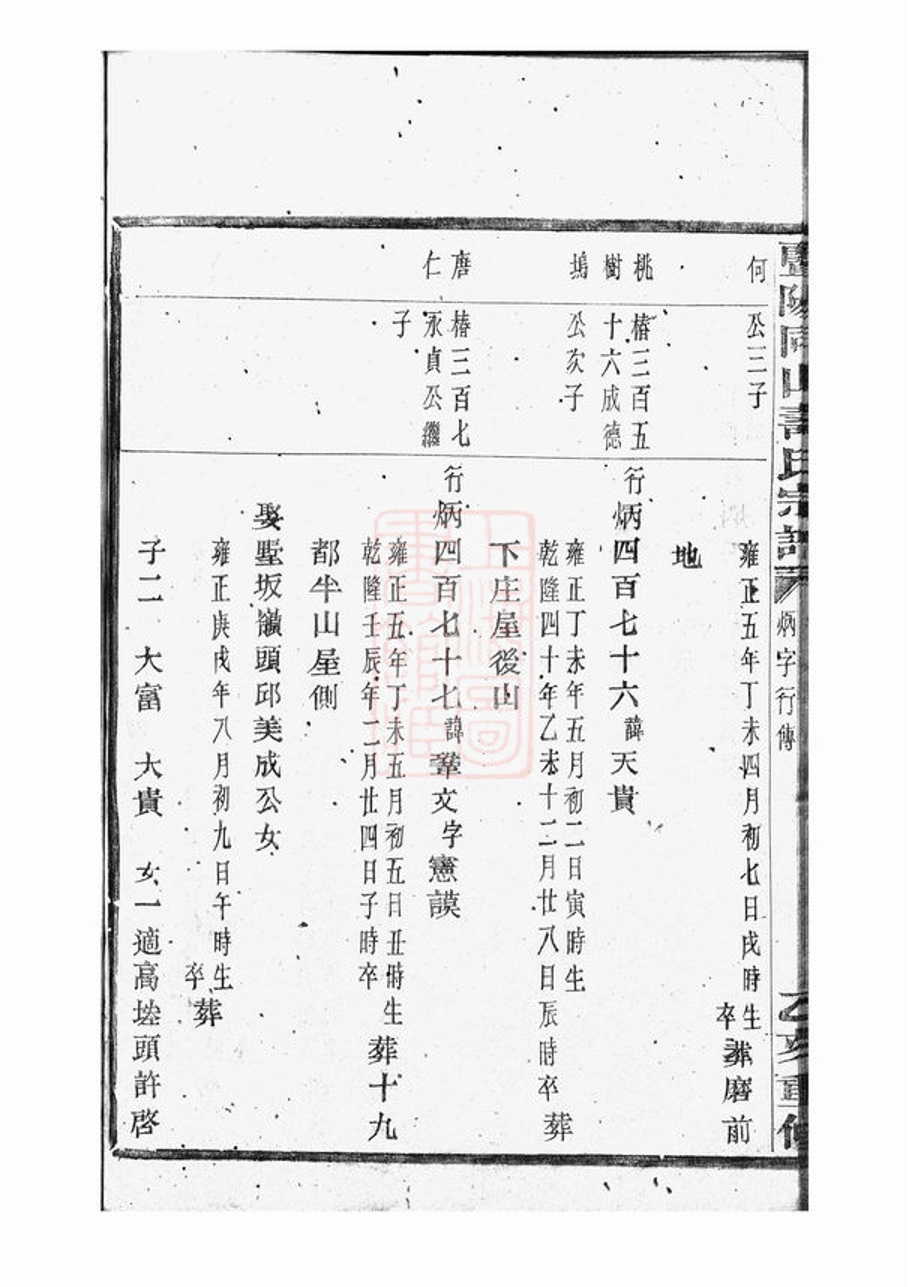 暨陽同山壽氏宗譜
炳字行傳
乙亥重修
何
公三子
雍正五年丁未四月初七日戌時生
卒
葬磨前
地
桃樹塢
椿三百五
十六成德
公次子
行炳四百七十六諱天貴
雍正丁未年五月初二日寅時生
乾隆四十年乙未十二月廿八日辰時卒
葬
下庄屋後山
唐仁
椿三百七
永貞公繼
子
行炳四百七十七諱鞏文字憲謨
雍正五年丁未五月初五日丑時生
乾隆壬辰年二月廿四日子時卒
葬十九
都半山屋側
娶墅坂嶺頭邱美成公女
雍正庚戌年八月初九日午時生
卒
葬
子二 大富 大貴 女一適高塋頭許啓
上海圖書館藏